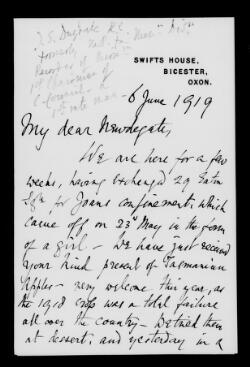 SWIFTS HOUSE,
BICESTER,
OXON.
6 June 1919
My dear Newdegate,
We are here for a few
weeks, having exchanged 29 Eaton
Sqre for Joans confinement, which
came off on 23rd May in the form
of a girl – We have just received
your kind present of Tasmanian
Apples – very welcome this year, as
the 1918 crop was a total failure
all over the country – We tried them
at dessert; and yesterday in a